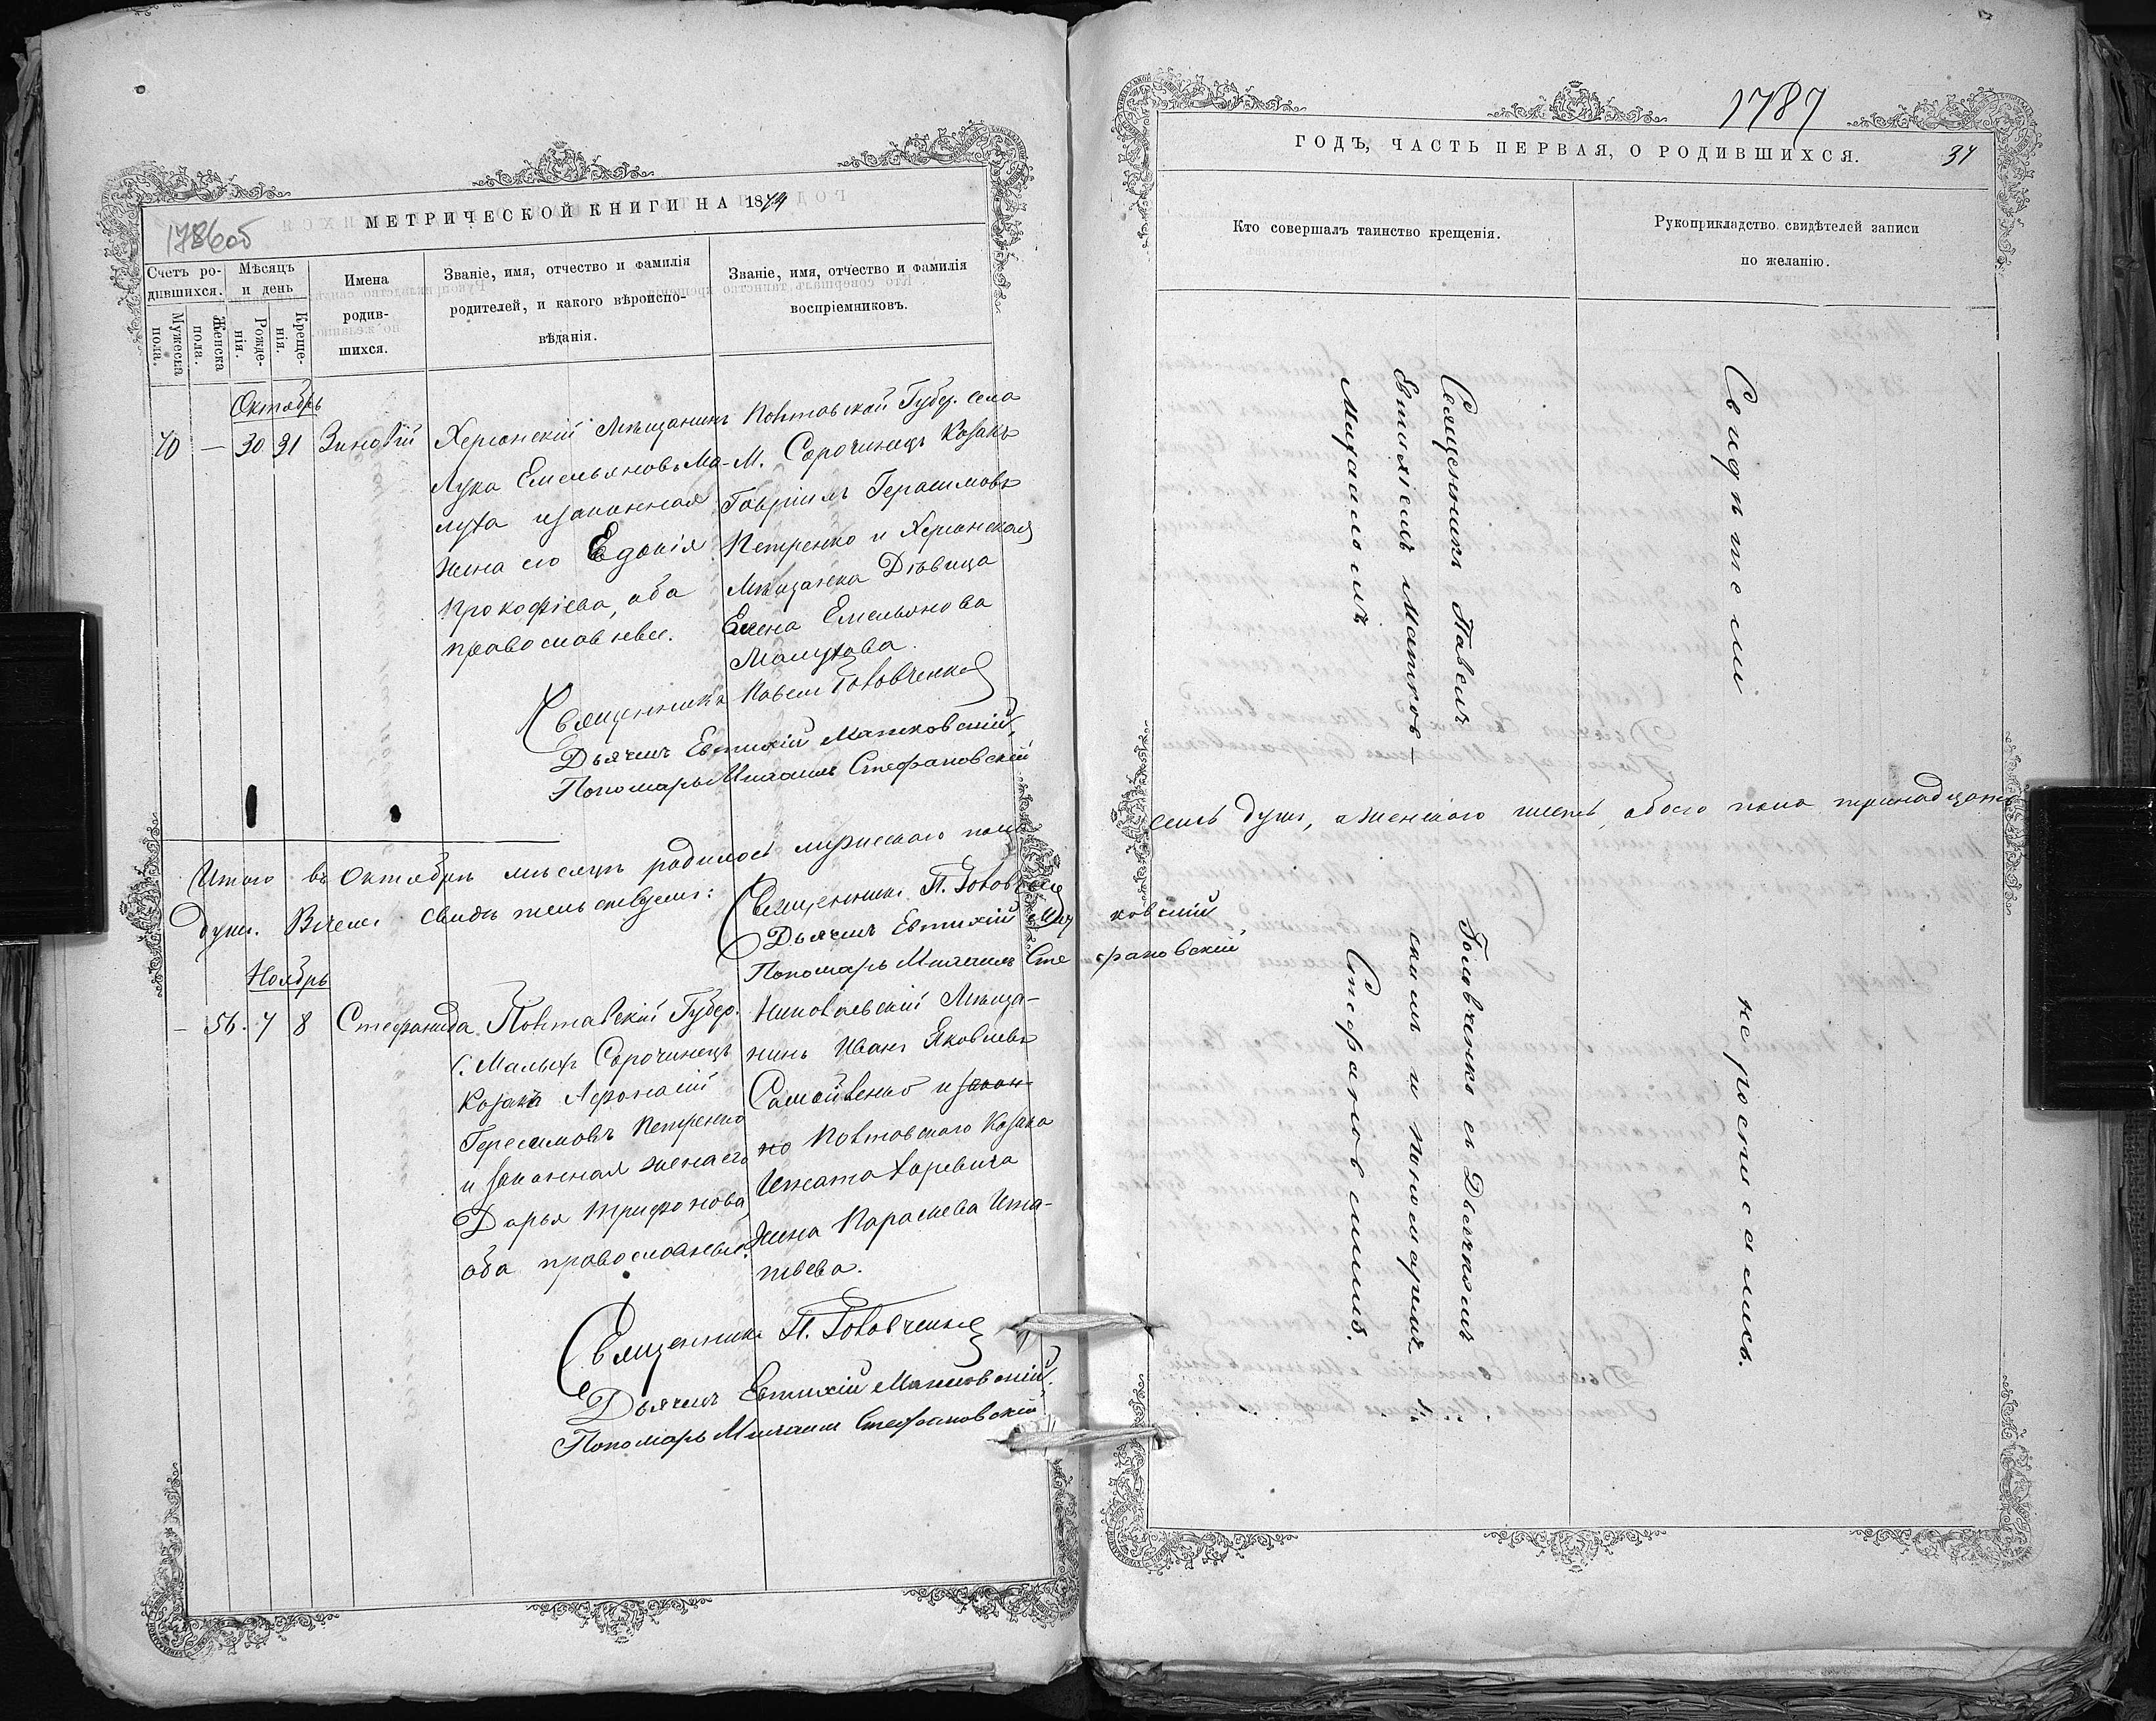 1786об
МЕТРИЧЕСКОЙ КНИГИ НА 1874
Счетъ ро-
дившихся.
Мѣсяцъ
и день
Имена
родив-
шихся.
Званіе, имя, отчество и фамилія
родителей, и какого вѣроиспо-
вѣданія.
Званіе, имя, отчество и фамилія
воспріемниковъ.
Мужеска
пола.
Женска
пола.
Рожде-
нія.
Креще-
нія.
Октябрь
40 — 30 31 Зиновій
Херсонскій Мѣщанинъ
Лука Емельяновъ Ма-
луха и законная
жена его Евдокія
Прокофіева, оба
православные.
Полтавской Губер. села
М. Сорочинецъ Козакъ
Гавріилъ Герасимовъ
Петренко и Херсонская
Мѣщанка Дѣвица
Елена Емельянова
Малухова.
Священникъ Павелъ Головченко
Дьячекъ Евтихій Матковскій
Пономарь Михаилъ Стефановскій
Итого въ Октябрѣ мѣсяцѣ родилось мужескаго пола
семь душъ, а женскаго шесть, обоего пола тринадцать
душъ. В чемъ свидѣтельствуемъ:
Священникъ П. Головченко
Дьячекъ Евтихій Матковскій
Пономарь Михаилъ Стефановскій
Ноябрь
— 56. 7 8 Стефанида
Полтавскій Губер.
с. Малыхъ Сорочинецъ
Козакъ Афонасій
Герасимовъ Петренко
и законная жена его
Дарья Трифонова
оба православные.
Николаевскій Мѣща-
нинъ Иванъ Яковлевъ
Самойленко и закон-
но Полтавскаго Козака
Игната Харевича
Жена Параскева Игна-
тьева.
Священникъ П. Головченко
Дьячекъ Евтихій Матковскій
Пономарь Михаилъ Стефановскій
1787
ГОДЪ, ЧАСТЬ ПЕРВАЯ, О РОДИВШИХСЯ.
34
Кто совершалъ таинство крещенія.
Рукоприкладство свидѣтелей записи
по желанію.
Священникъ Павелъ Головченко съ Дьячкомъ
Евтихіемъ Матков-скимъ и Пономаремъ
Михаиломъ Стефановскимъ.
Свидѣтели не росписались.